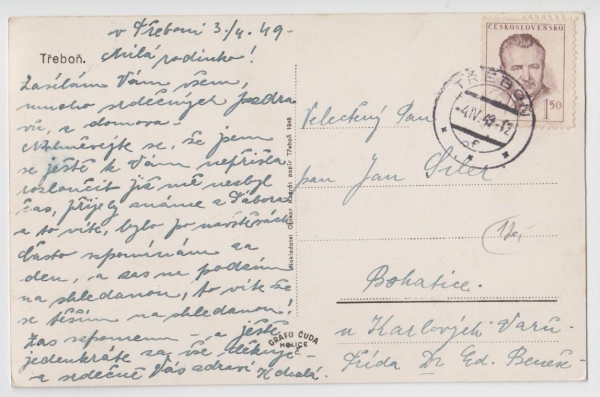 v Třeboni 3./4. 49.
Třeboň.
Milá rodinko!
Zasílám Vám všem,
mnoho srdečných pozdra
vů, z domova.
Nehněvejte se, že jsem
se ještě k Vám nepřišla
rozloučit již mě nezbyl
čas, přijely známé z Tábora
a to víte, bylo po návštěvách
Často vzpomínám za
den, a zas na podzim
na shledanou, to víte že
se těším na shledanou!
Zas vzpomenu - a ještě
jedenkráte za vše děkuji
a srdečně Vás zdraví
Nakladatel Otakar papír Třeboň 1948
GRAFO ČUDA
HOLICE
Č.
ČESKOSLOVENSKO
1.50
TŘEBOŇ
-4.IV.49-12
Velectěný Pan
pan Jan Siler
Bohatice.
u Karlových Varů.
Třída Dr Ed. Beneš-